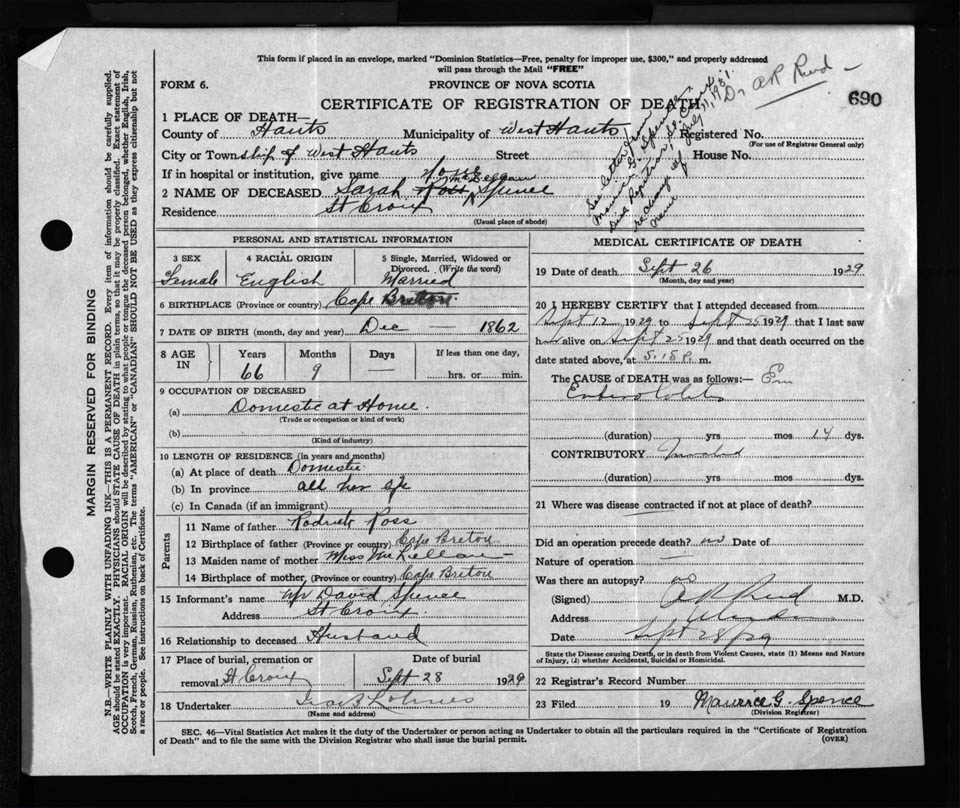 This form if placed in an envelope, marked "Dominion Statistics—Free, penalty for improper use, $300," and properly addressed
will pass through the Mail "FREE"
FORM 6.
PROVINCE OF NOVA SCOTIA
Dr A R Reid
CERTIFICATE OF REGISTRATION OF DEATH
690
See letter from
Maurice G. Spence
Div. Registrar, St. Croix
July 11, 1931
re change of
name
1 PLACE OF DEATH—
County of Hants Municipality of West Hants Registered No.
(For use of Registrar General only)
City or Township of West Hants Street House No.
If in hospital or institution, give name
2 NAME OF DECEASED Sarah Ross Spence
Residence St Croix
(Usual place of abode)
PERSONAL AND STATISTICAL INFORMATION
3 SEX 4 RACIAL ORIGIN 5 Single, Married, Widowed or
Divorced. (Write the word)
Female English Married
6 BIRTHPLACE (Province or country) Cape Breton
7 DATE OF BIRTH (month, day and year) Dec — 1862
8 AGE IN Years Months Days If less than one day,
66 9 — hrs. or min.
9 OCCUPATION OF DECEASED
(a) Domestic at Home.
(Trade or occupation or kind of work)
(b)
(Kind of industry)
10 LENGTH OF RESIDENCE (in years and months)
(a) At place of death Domestic
(b) In province all her life
(c) In Canada (if an immigrant)
Parents
11 Name of father Ross
12 Birthplace of father (Province or country) Cape Breton
13 Maiden name of mother Miss
14 Birthplace of mother, (Province or country) Cape Breton
15 Informant's name Mr David Spence
Address St Croix.
16 Relationship to deceased Husband
17 Place of burial, cremation or Date of burial
removal St Croix Sept 28 1929
18 Undertaker
(Name and address)
MEDICAL CERTIFICATE OF DEATH
19 Date of death Sept 26 1929
(Month, day and year)
20 I HEREBY CERTIFY that I attended deceased from
Sept 12 1929 to Sept 25 1929 that I last saw
h alive on Sept 25 1929 and that death occurred on the
date stated above, at 5.15 P. m.
The CAUSE OF DEATH was as follows:—
Entero Colitis
(duration) yrs mos 14 dys.
CONTRIBUTORY
(duration) yrs. mos dys.
21 Where was disease contracted if not at place of death?
Did an operation precede death? no Date of
Nature of operation —
Was there an autopsy? no
(Signed) A R Reid M.D.
Address
Date Sept 28/29
State the Disease causing Death, or in death from Violent Causes, state (1) Means and Nature
of Injury, (2) whether Accidental, Suicidal or Homicidal.
22 Registrar's Record Number
23 Filed 19 Maurice G. Spence
(Division Registrar)
SEC. 46—Vital Statistics Act makes it the duty of the Undertaker or person acting as Undertaker to obtain all the particulars required in the "Certificate of Registration
of Death" and to file the same with the Division Registrar who shall issue the burial permit.
(OVER)
MARGIN RESERVED FOR BINDING
N.B.—WRITE PLAINLY WITH UNFADING INK—THIS IS A PERMANENT RECORD. Every item of information should be carefully supplied.
AGE should be stated EXACTLY. PHYSICIANS should STATE CAUSE OF DEATH in plain terms, so that it may be properly classified. Exact statement of
OCCUPATION is very important. RACIAL ORIGIN will be described by stating to what people or tongue the deceased person belonged, whether English, Irish,
Scotch, French, German, Russian, Ruthenian, etc. The terms "AMERICAN" or "CANADIAN" SHOULD NOT BE USED as they express citizenship but not
a race or people. See instructions on back of Certificate.